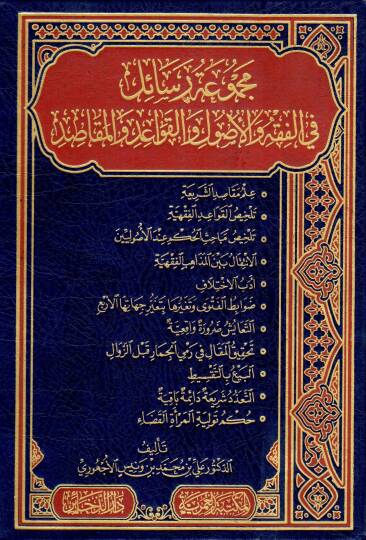 مجموعة رسائل
في الفقه والأصول والقواعد والمقاصد
علم مقاصد الشريعة
تلخيص القواعد الفقهية
تلخيص مباحث الحكم عند الأصوليين
الانتقال بين المذاهب الفقهية
أدب الاختلاف
ضوابط الفتوى وتغيرها بتغير جهاتها الأربع
التعايش ضرورة واقعية
تحقيق المقال في رمي الجمار قبل الزوال
البيع بالتقسيط
التعدد شريعة دائمة باقية
حكم تولية المرأة القضاء
تأليف
الدكتور علي بن محمد بن ونيس الأجهوري